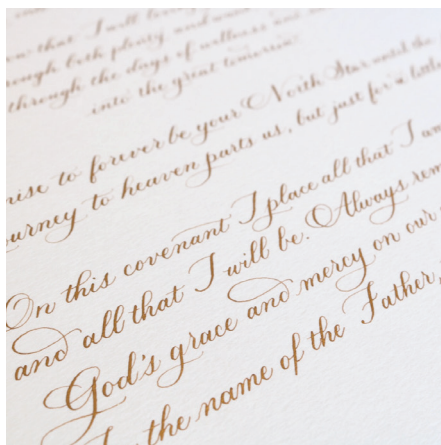 that I will
through both plenty and
through the days of wellness and
into the great tomorrow.
to forever be your North Star until the
journey to heaven parts us, but just for a little
On this covenant I place all that I am
and all that I will be. Always
God's grace and mercy on our
the name of the Father,